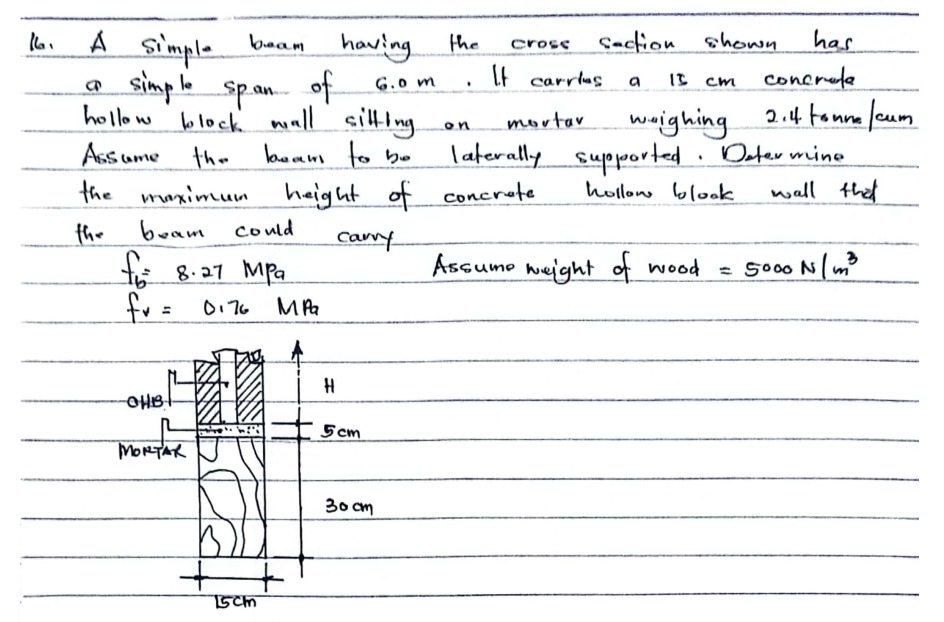 16. A simple beam having the cross section shown has
a simple span of 6.0 m . It carries a 15 cm concrete
hollow block wall sitting on mortar weighing 2.4 tonne/cum
Assume the beam to be laterally supported. Determine
the maximum height of concrete hollow block wall that
the beam could carry
fb = 8.27 MPa Assume weight of wood = 5000 N/m³
fv = 0.76 MPa
H
CHB
5 cm
MORTAR
30 cm
15cm